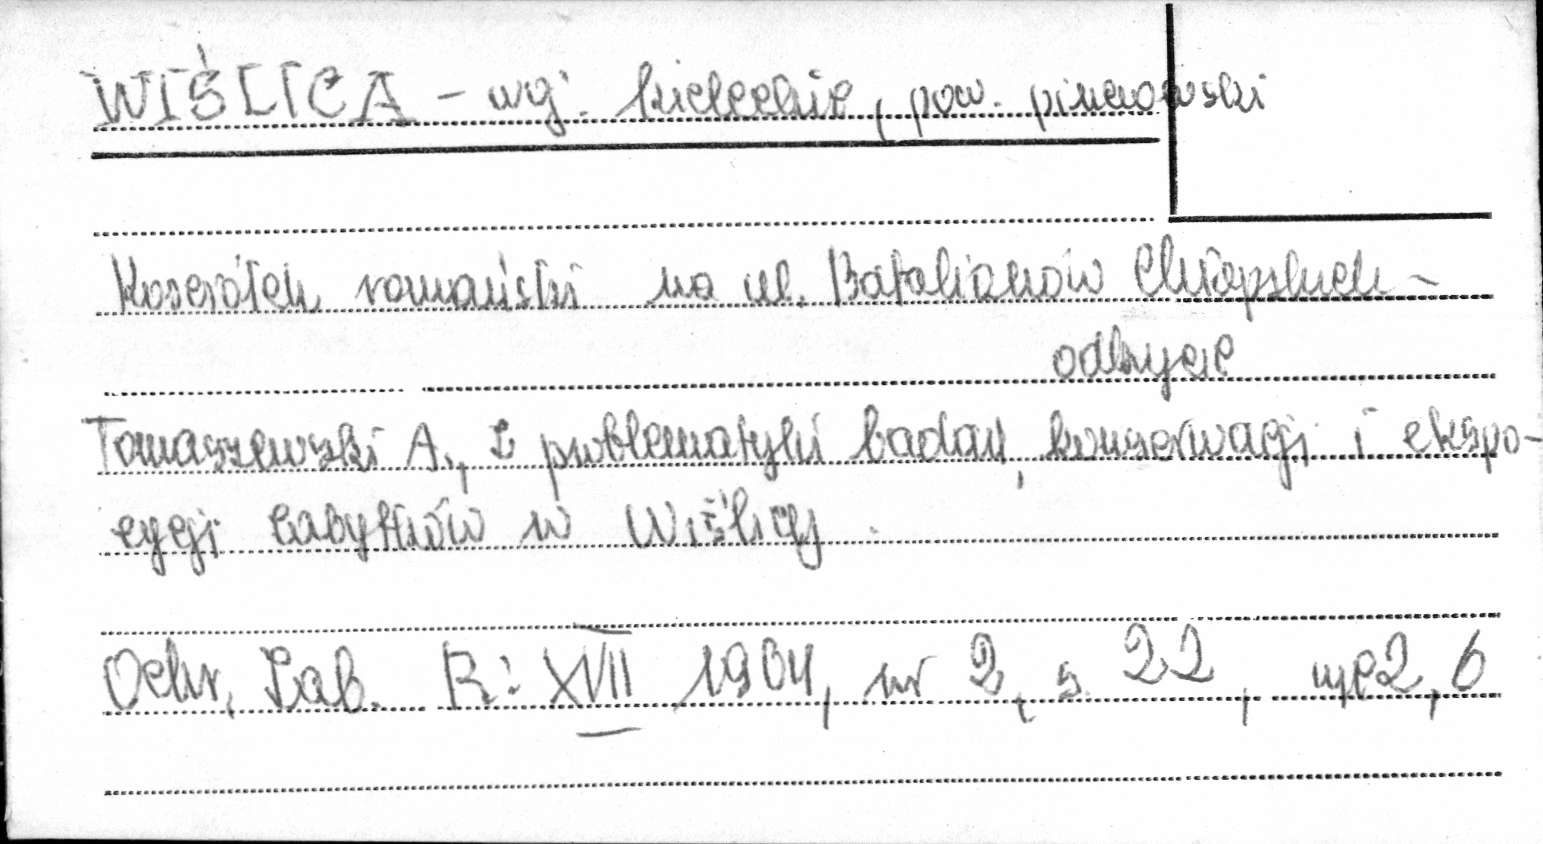 WIŚLICA - woj. kieleckie, pow. pińczowski
Kościółek romański na ul. Batalionów Chłopskich -
odkrycie
Tomaszewski A., Z problematyki badań, konserwacji i ekspo-
zycji zabytków w Wiślicy.
Ochr. Zab. R: XVII 1964, nr 2, s. 22, ryc 2, 6